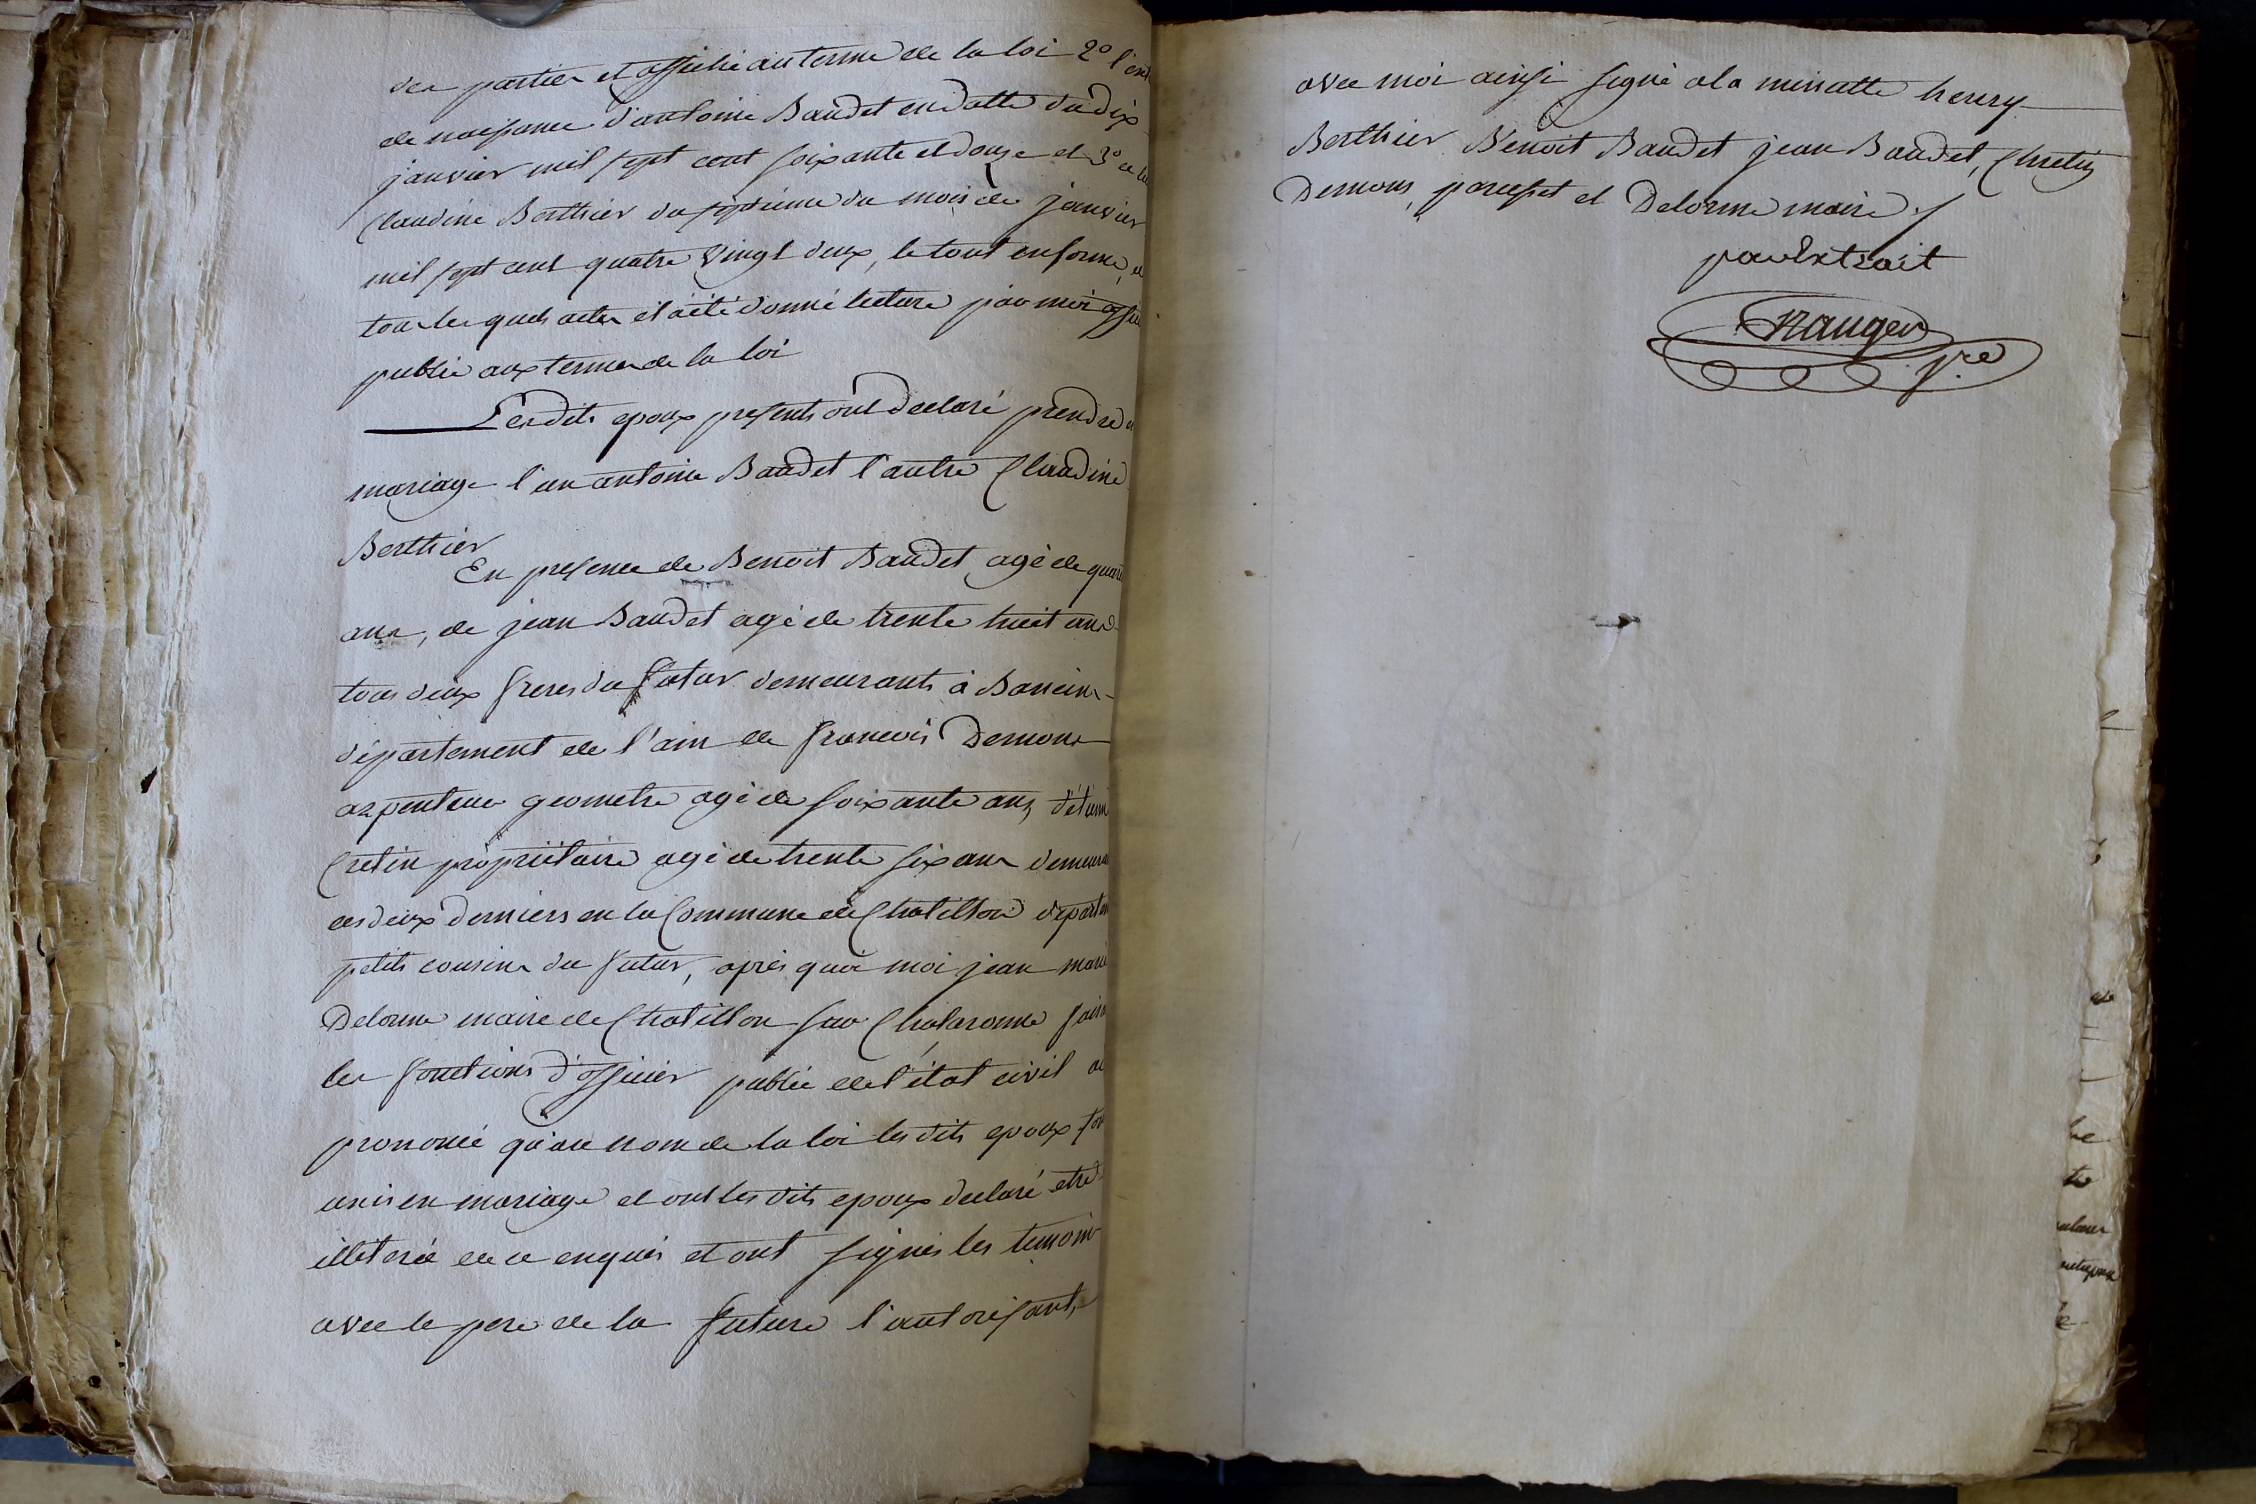 des parties et affiché au terme de la loi 2o l'ext
de naissance d'antoine Baudet en datte du dix
janvier mil sept cent soixante et douze et 3o celui
Claudine Berthier du septieme du mois de janvier
mil sept cent quatre vingt deux, le tout en forme,
tous les quels actes il a été donné lecture par moi offi
public aux termes de la loi
Les dits epoux presents ont declaré prendre en
mariage l'un antoine Baudet l'autre Claudine
Berthier
En presence de Benoit Baudet, agé de quar
ans, de jean Baudet agé de trente huit ans
tous deux freres du futur demeurants à Baneins
département de l'ain de francois Demons
arpenteur geometre agé de soixante ans, d'étienn
Cretin propriétaire agé de trente six ans demeura
ces deux derniers en la Commune de Chatillon départem
petits cousins du futur, après quoi moi jean marie
Delorme maire de Chatillon sur Chalaronne faisa
les fonctions d'officier public de l'état civil ai
prononcé qu'au nom de la loi les dits epoux son
unis en mariage et ont les dits epoux declaré etre
illeteré de ce enquis et ont signés les temoins
avec le pere de la future l'autorisant,
avec moi ainsi signé a la minutte henry
Berthier Benoit Baudet jean Baudet, Chretin
Demons, et Delorme maire ./
par Extrait
Mauger
pre